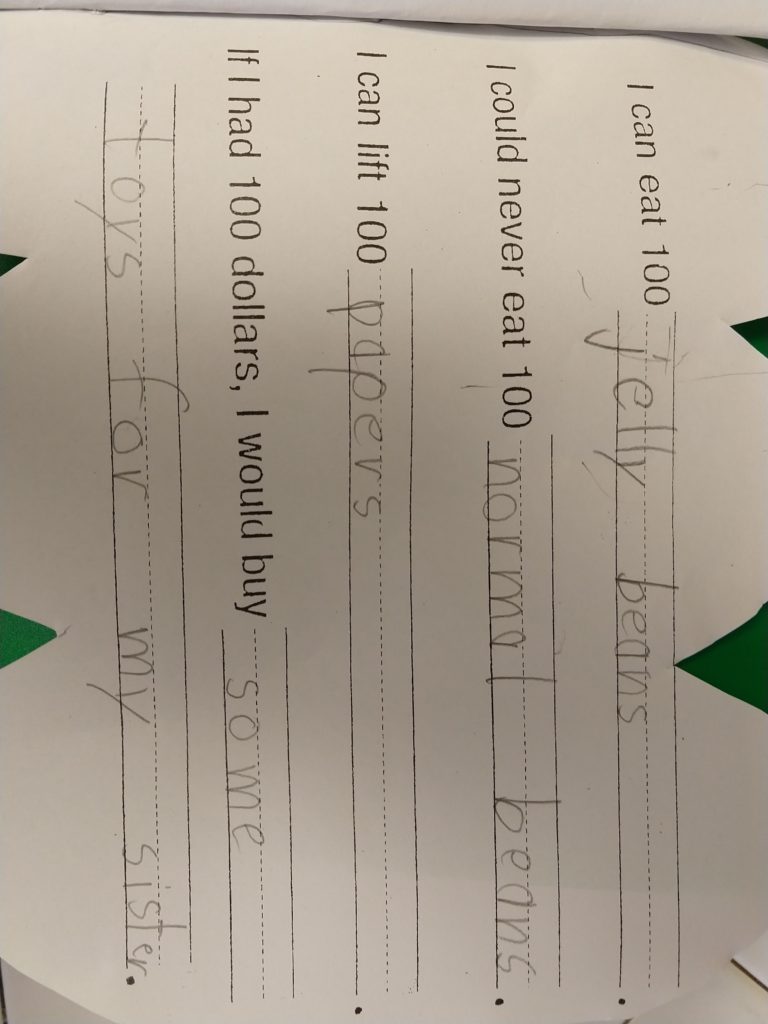 I can eat 100 jelly beans.
I could never eat 100 normal beans.
I can lift 100 papers.
If I had 100 dollars, I would buy some
toys for my sister.